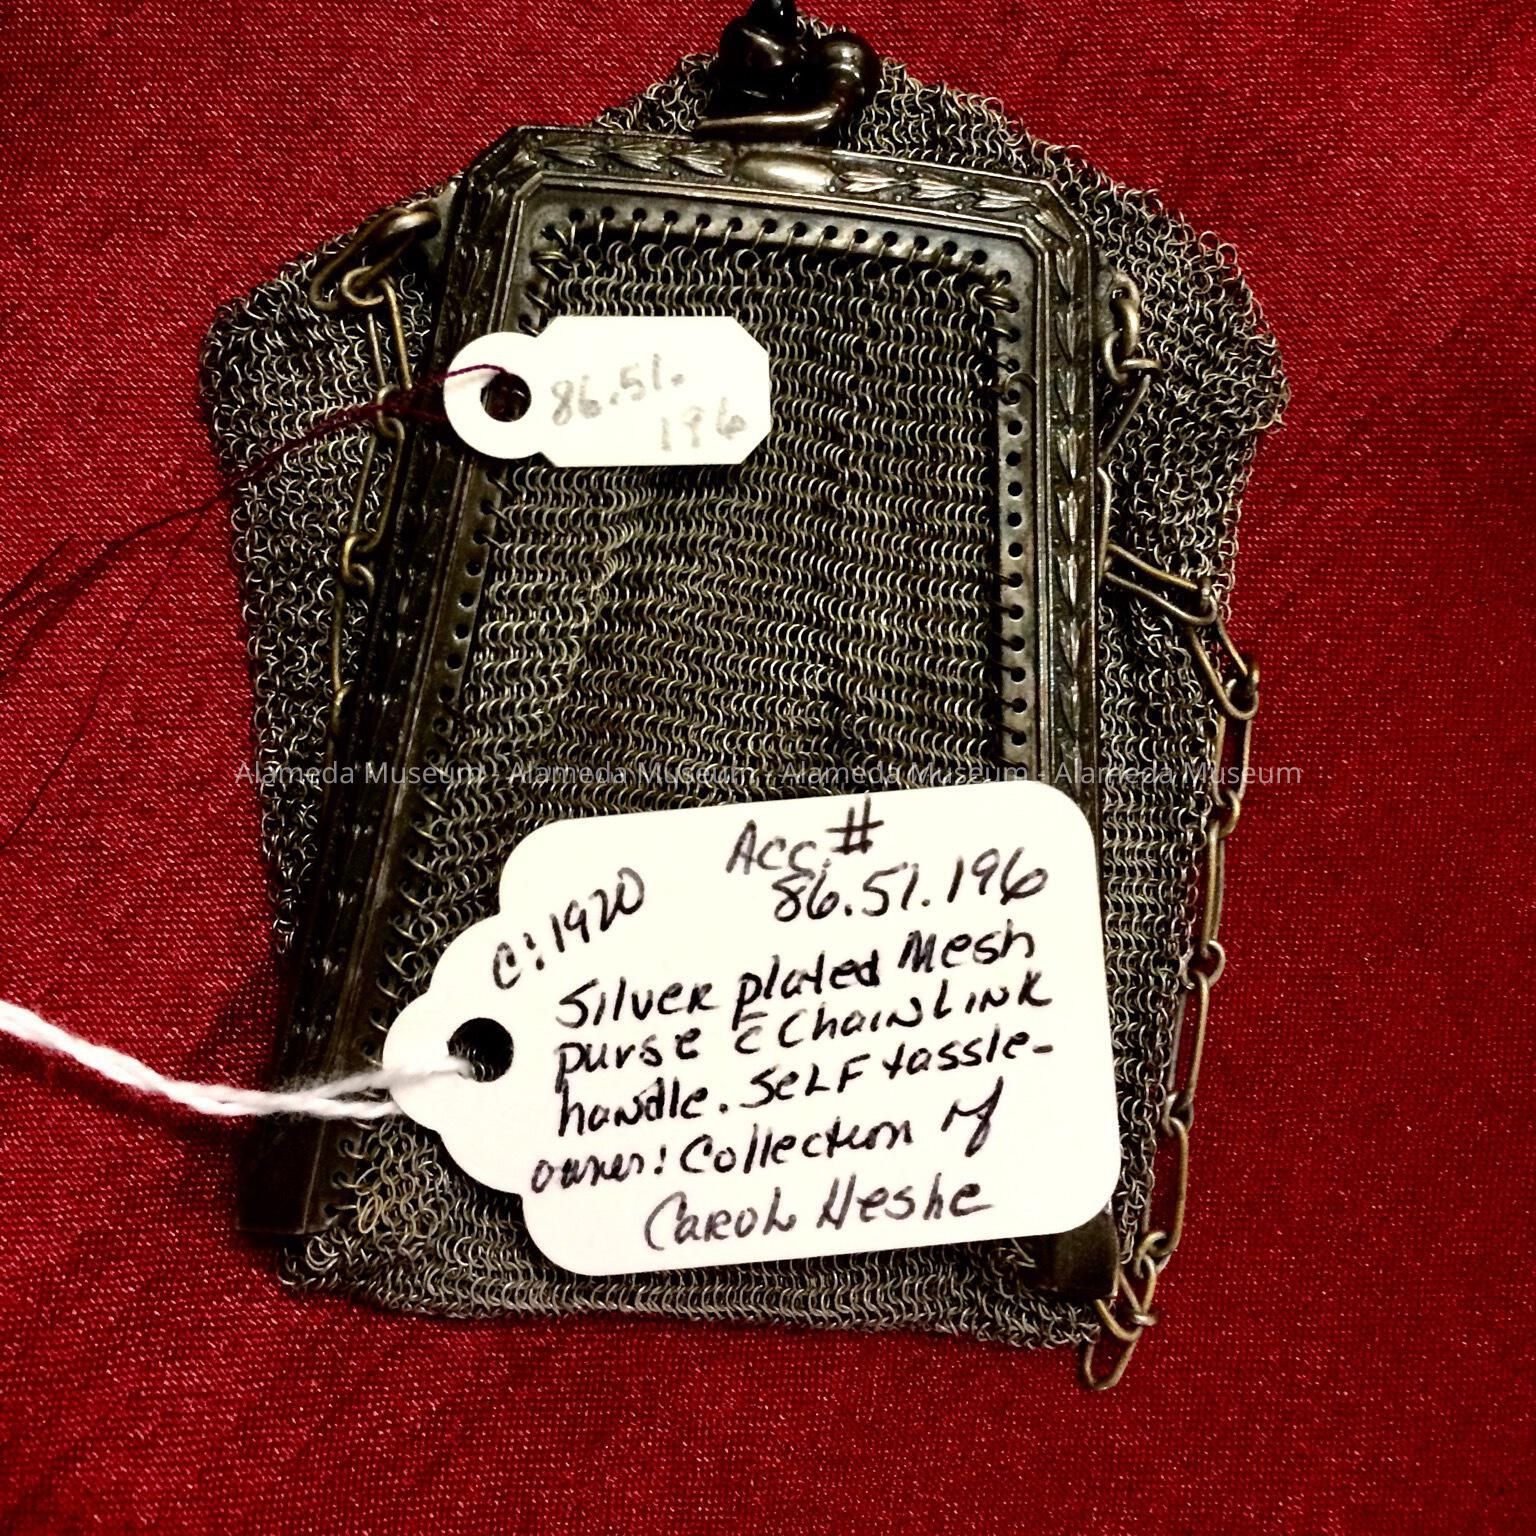 86.51.
196
Alameda Museum - Alameda Museum - Alameda Museum - Alameda Museum
Acc.#
86.51.196
C:1920
Silver plated Mesh
purse c̄ Chain Link
handle. Self tassle-
owner: Collection of
Carol Heshe